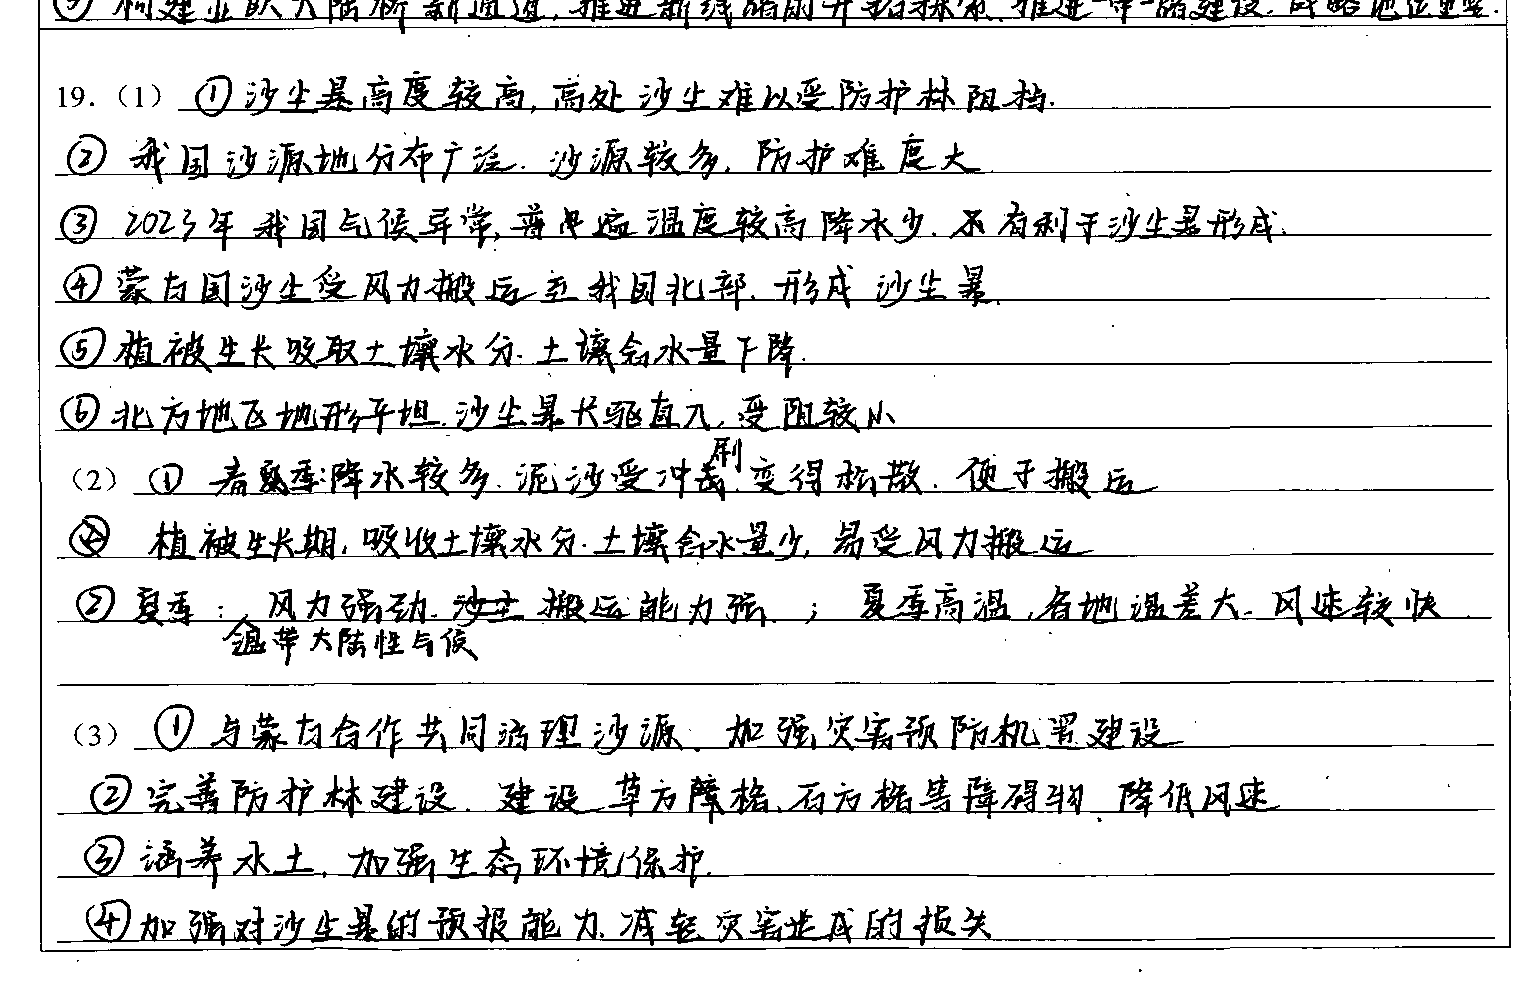 构建亚欧大陆桥新通道,推进新线路的开拓探索,推进一带一路建设.战略地位重要.
19.（1）①沙尘暴高度较高,高处沙尘难以受防护林阻挡.
②我国沙源地分布广泛.沙源较多,防护难度大
③2023年我国气候异常,普遍温度较高降水少.有利于沙尘暴形成.
④蒙古国沙尘受风力搬运至我国北部.形成沙尘暴.
⑤植被生长吸取土壤水分.土壤含水量下降.
⑥北方地区地形平坦.沙尘暴长驱直入,受阻较小
（2）①春夏季:降水较多.泥沙受冲刷变得松散.便于搬运
植被生长期,吸收土壤水分.土壤含水量少,易受风力搬运
②夏季:风力强劲.搬运能力强.;夏季高温,各地温差大.风速较快
温带大陆性气候
（3）①与蒙古合作共同治理沙源、加强灾害预防机置建设
②完善防护林建设.建设草方障格、石方格等障碍物、降低风速
③涵养水土,加强生态环境保护.
④加强对沙尘暴的预报能力.减轻灾害造成的损失